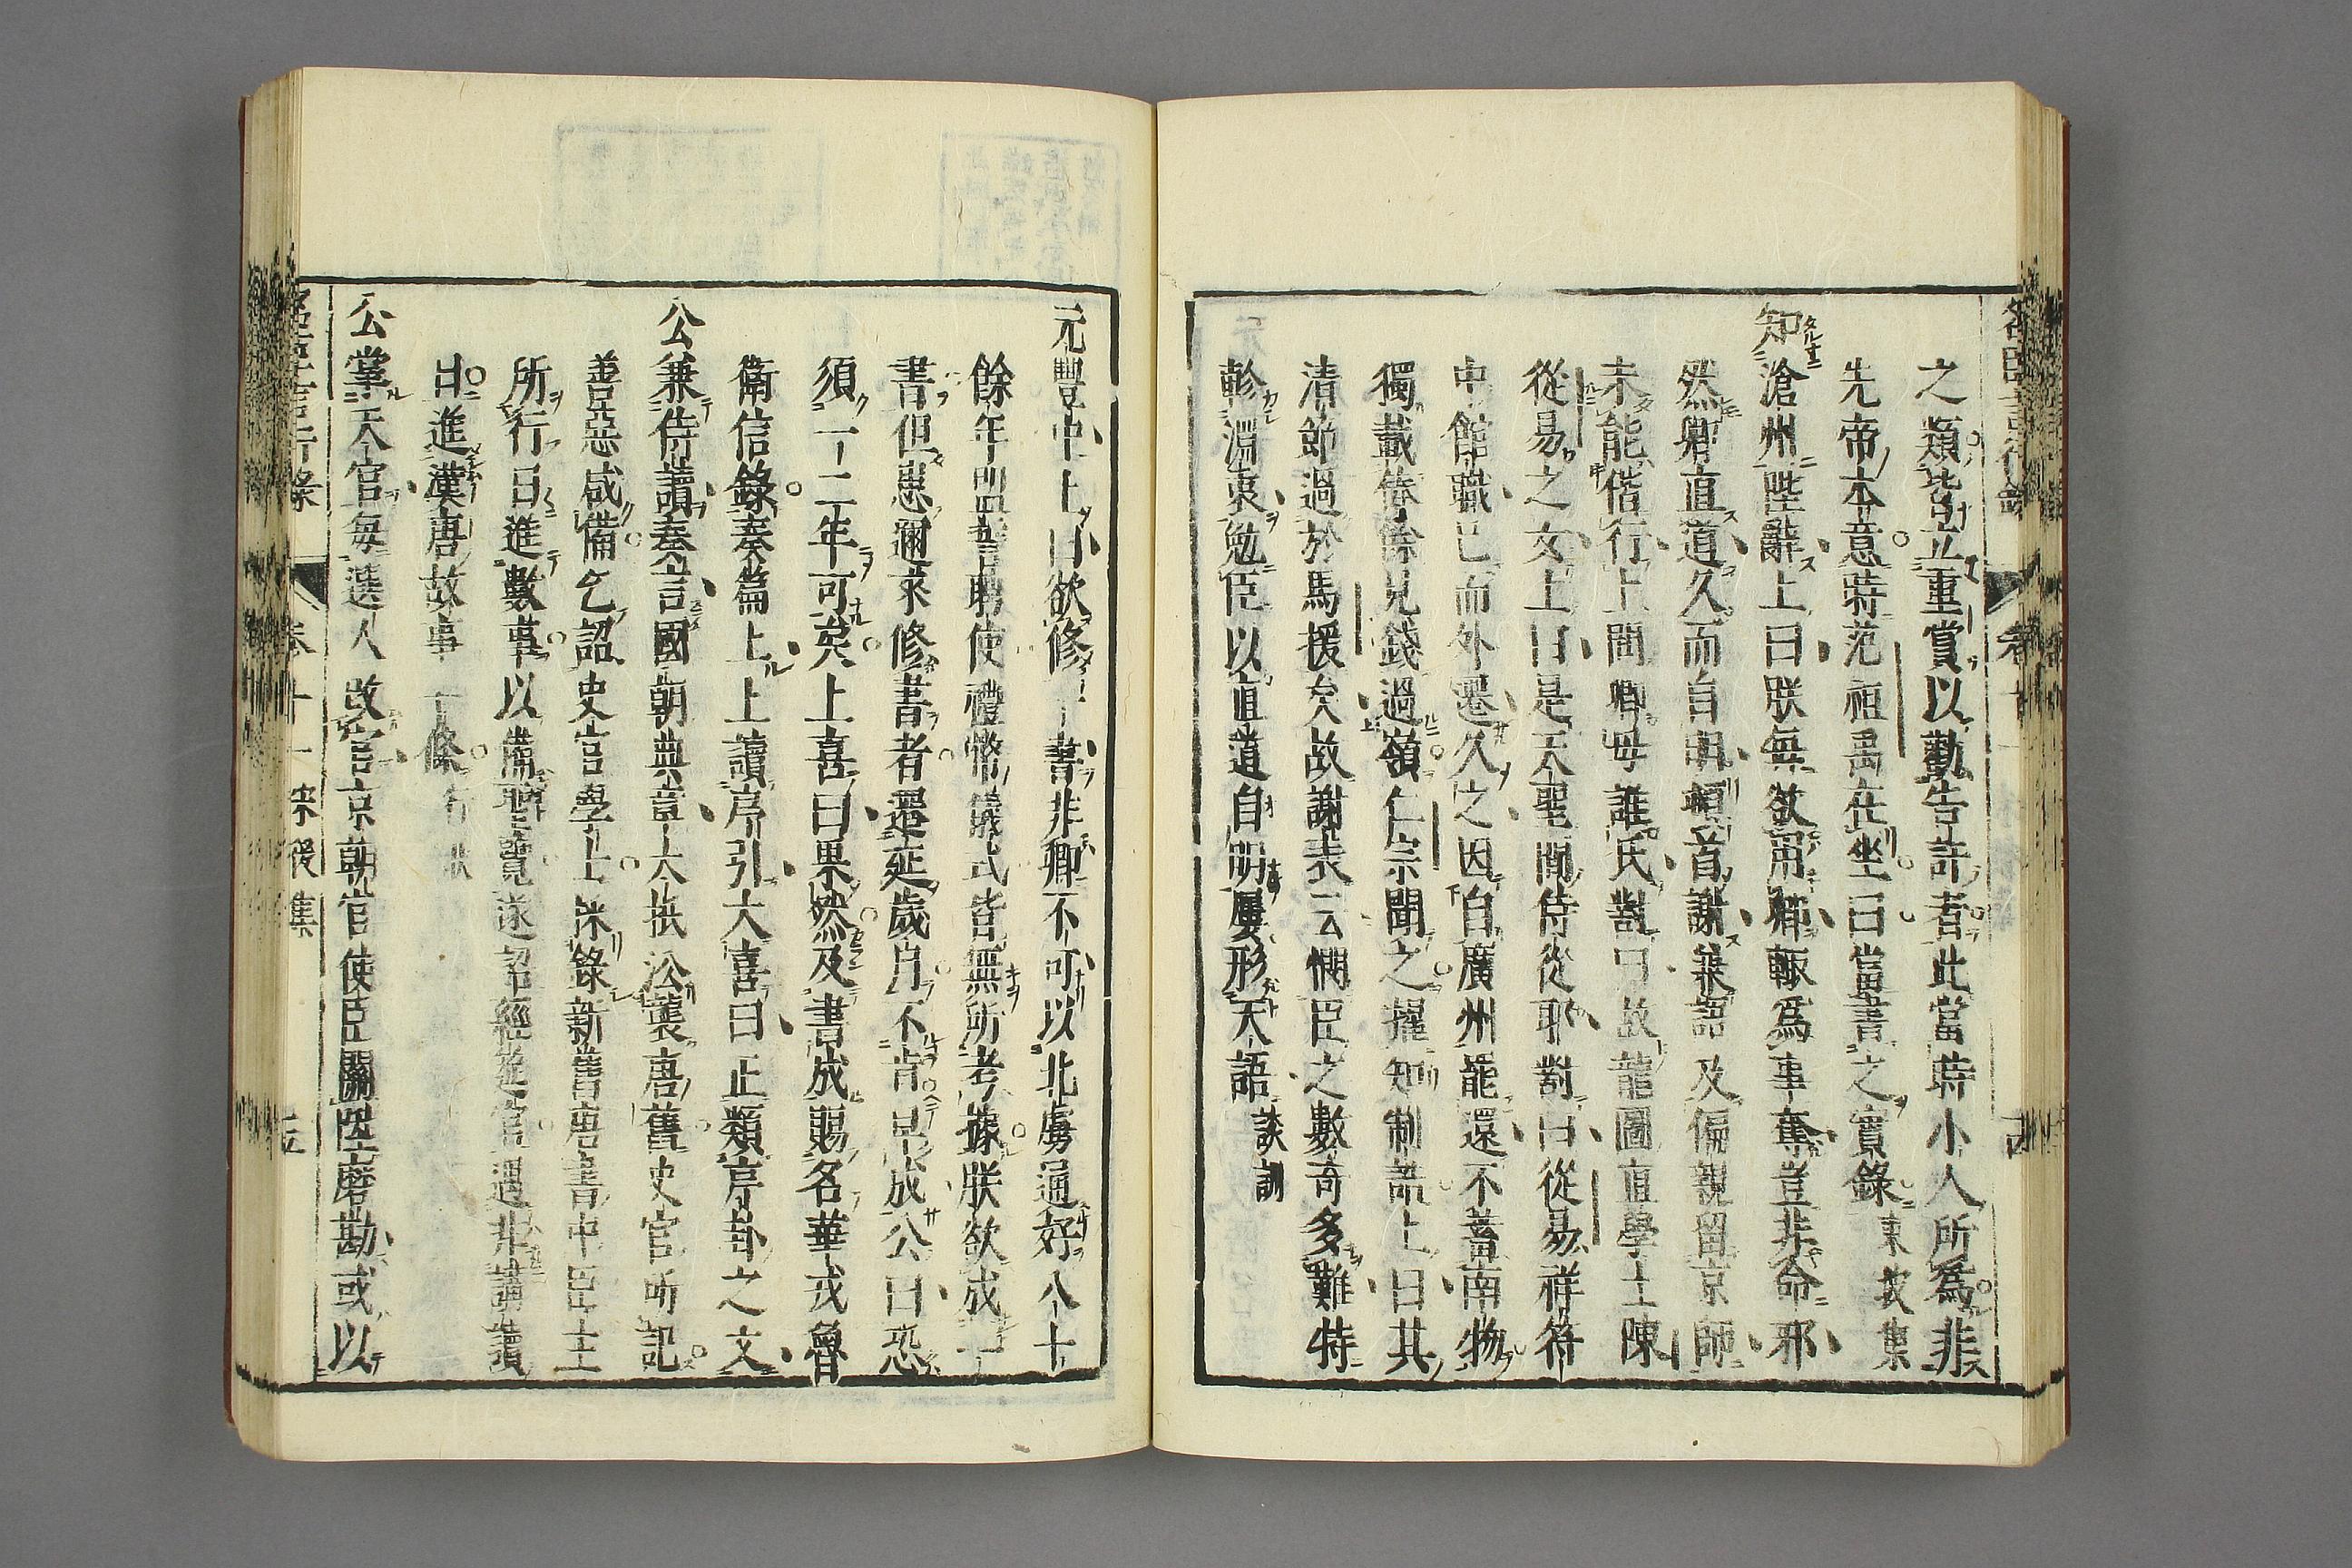 之類皆立重賞以勸告訐者此當時小人所爲非
先帝本意時范祖禹在坐曰當書之實錄東坡集
知滄州陛辭上曰朕無欲用卿輙爲事奪豈非命邪
然卿直道久而自明頓首謝莫諭及偏親留京師
未能偕行上問卿母誰氏對曰故龍圖直學士陳
從易之女上曰是天聖間侍從耶對曰從易祥符
中館職已而外遷久之因自廣州罷還不蓄南物
獨載俸餘見錢過嶺仁宗聞之擢知制誥上曰其
清節過於馬援矣故謝表云憫臣之數奇多難特
軫淵衷勉臣以直道自明屢形天語談訓
元豐中上曰欲修一書非卿不可以北虜通好八十
餘年盟誓聘使禮幣儀式皆無所考據朕欲成一
書但患邇來修書者遷延歲月不肯早成公曰恐
須一二年可矣上喜曰果然及書成賜名華戎魯
衛信錄奏篇上上讀序引大喜曰正類序卦之文
公兼侍讀奏言國朝典章大抵沿襲唐舊史官所記
善惡咸備乞詔史官學士採錄新舊唐書中臣主
所行日進數事以備聖覽遂詔經筵官遇非講讀
日進漢唐故事一條行狀
公掌天官每選人改官京朝官使臣關陞磨勘或以
名臣言行錄
卷十一
宋後集